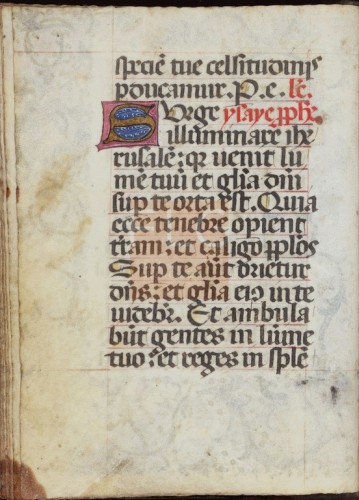 specie͞ tue celsitudinis
ꝑducamur. P. e. le͞.
Surge ysaye ꝓphe.
illuminare ihe
rusale͞: qꝛ uenit lu
me͞ tuu͞ et gl̃ia dn͞i
suꝑ te orta est. Quia
ecce tenebre opient
tr͞am: et caligo ppl̃os
Suꝑ te aut͞ orietur
dn͞s: et gl̃ia eiꝰ in te
uidebr̃. Et ambula
bu͞t gentes in lumi͞e
tuo: et reges in sple͞